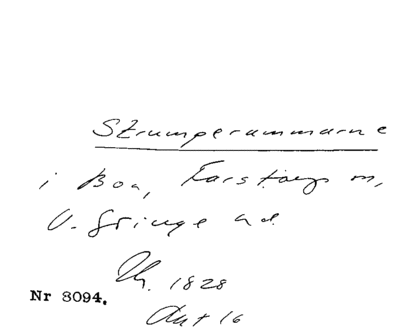 Strumperummarne
i Boa, Torstorps m,
V. Gringe hd
Th. 1828
Nr 8094.
Akt 16